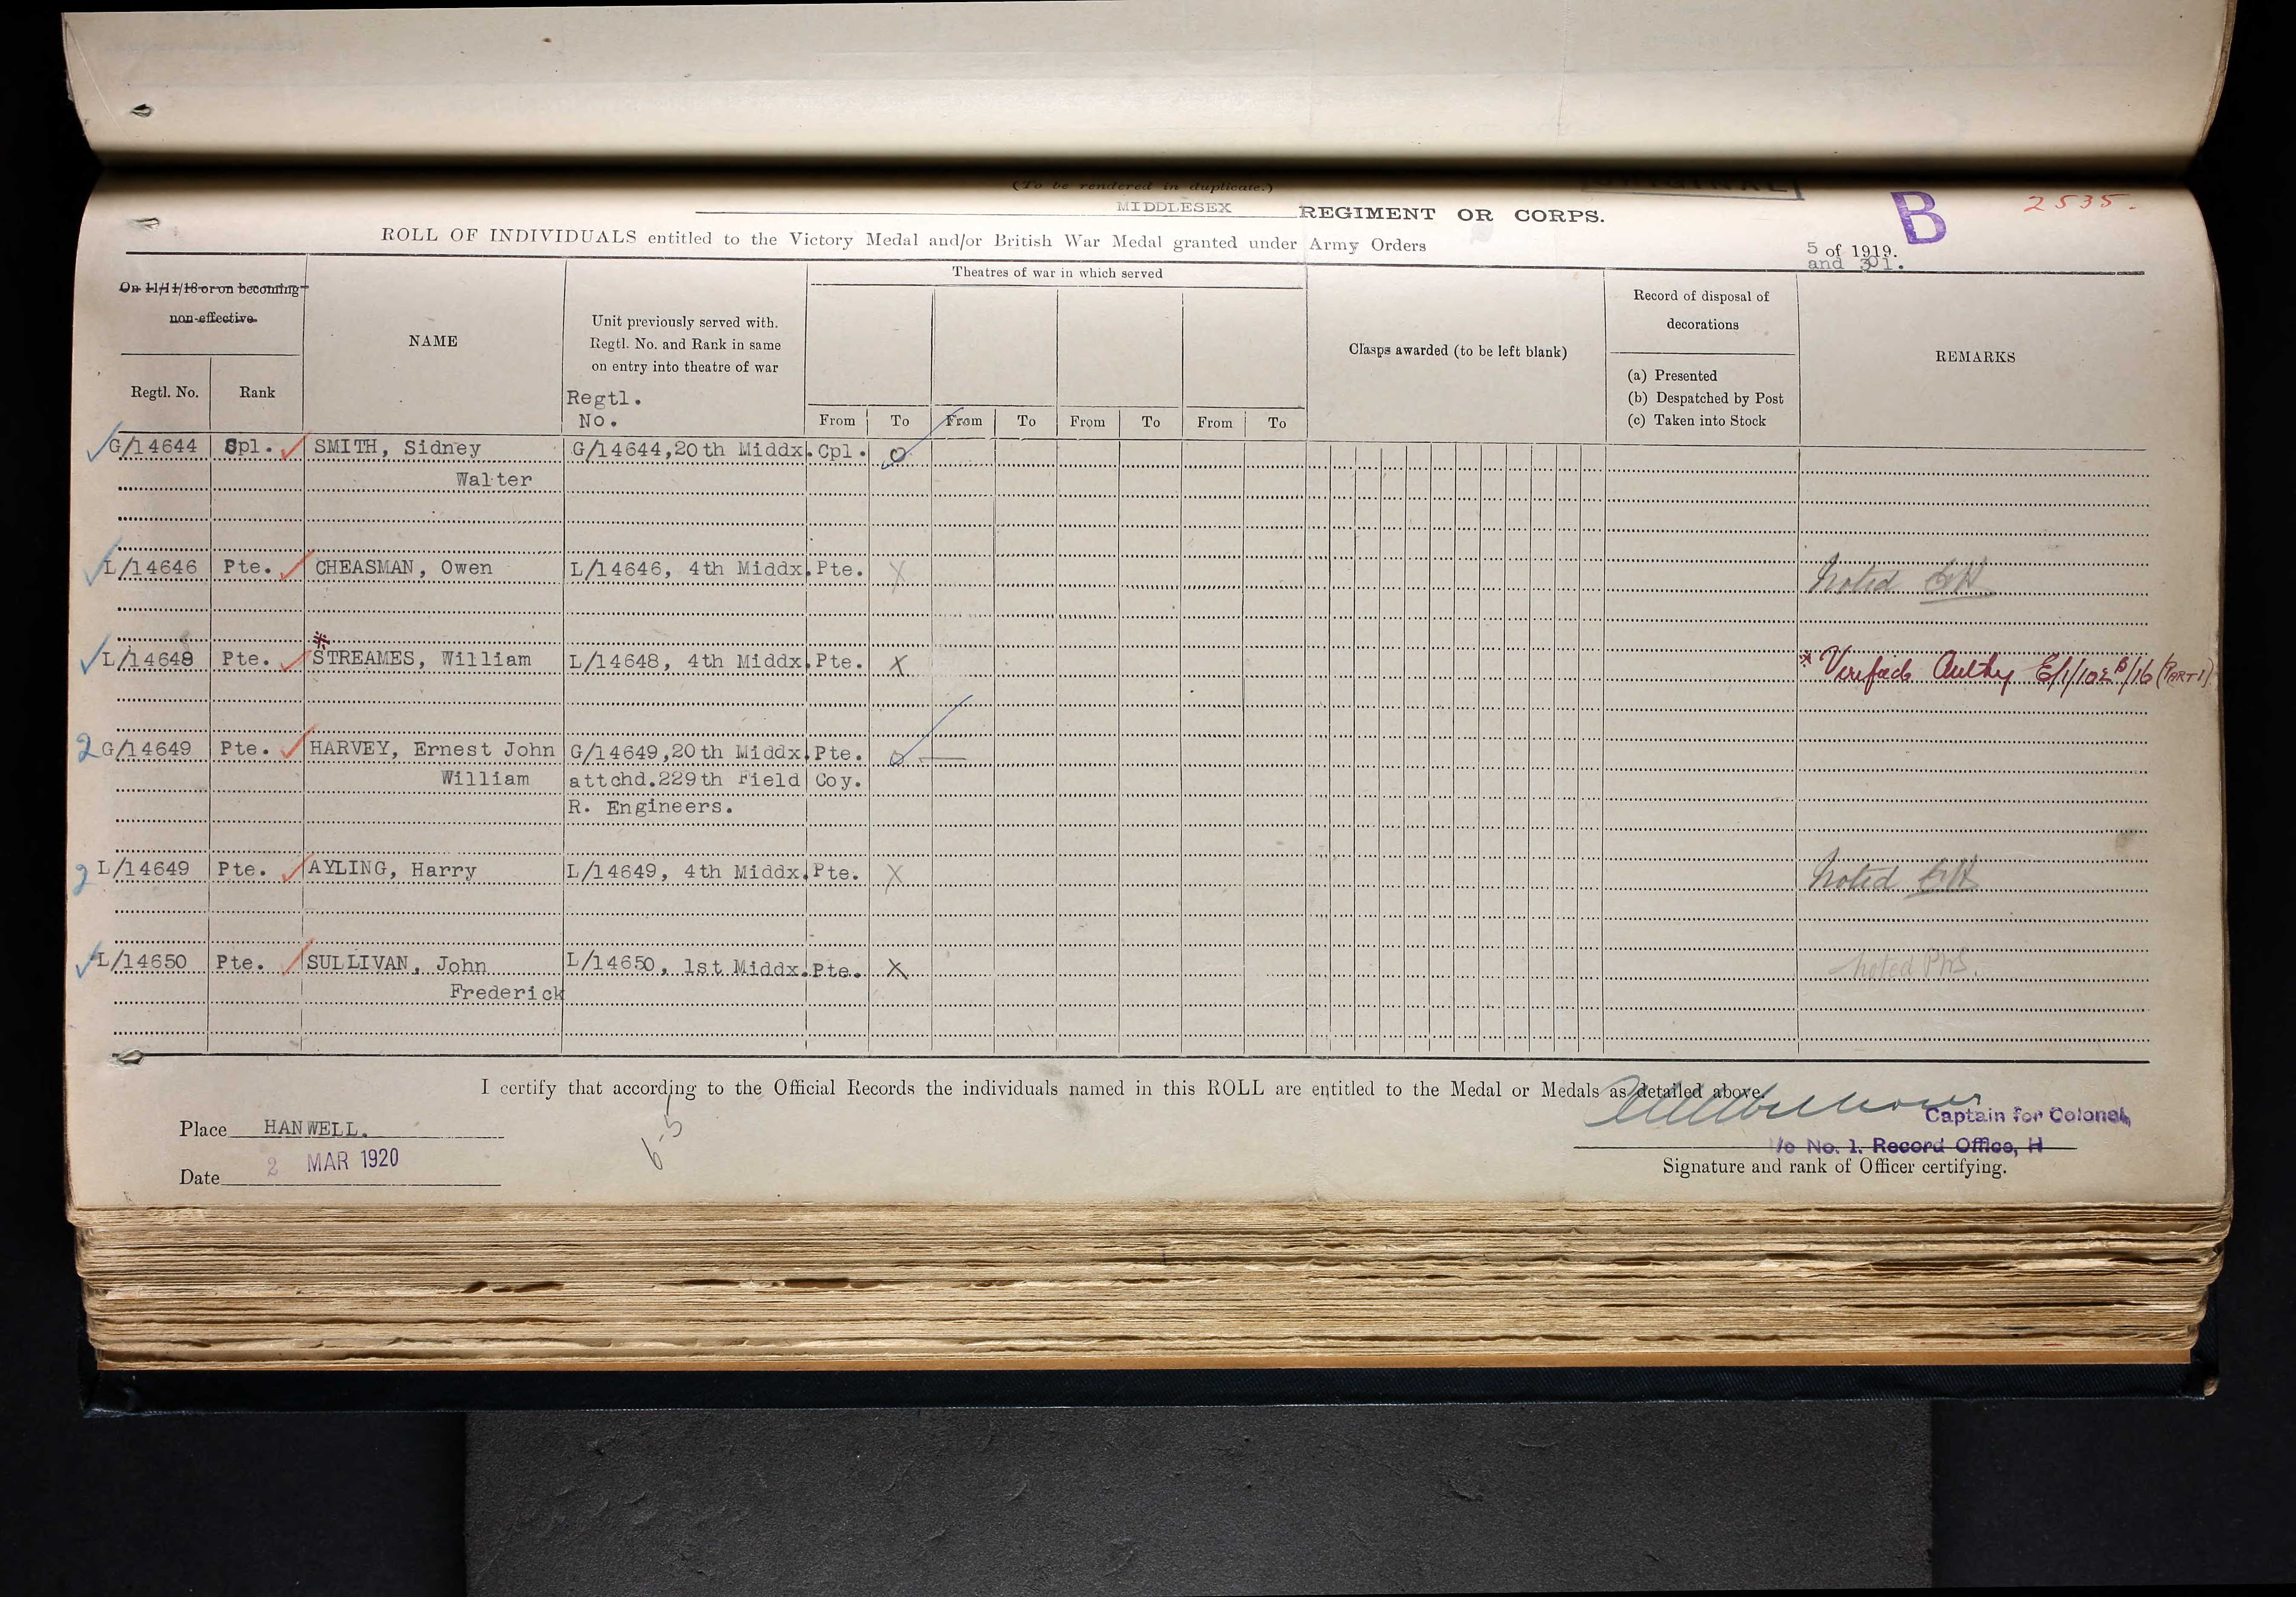 (To be rendered in duplicate.)
MIDDLESEX REGIMENT OR CORPS.
B
2535.
ROLL OF INDIVIDUALS entitled to the Victory Medal and/or British War Medal granted under Army Orders
5 of 1919.
and 301.
On 11/11/18 or on becoming
non-effective
Regtl. No.
Rank
NAME
Unit previously served with.
Regtl. No. and Rank in same
on entry into theatre of war
Regtl.
No.
Theatres of war in which served
From To From To From To From To
Clasps awarded (to be left blank)
Record of disposal of
decorations
(a) Presented
(b) Despatched by Post
(c) Taken into Stock
REMARKS
G/14644 Cpl. SMITH, Sidney G/14644, 20th Middx. Cpl. O
Walter
L/14646 Pte. CHEASMAN, Owen L/14646, 4th Middx. Pte. X Noted
L/14648 Pte. * STREAMES, William L/14648, 4th Middx. Pte. X * Verified Authy E/1/102B/16 (PART 1)
2 G/14649 Pte. HARVEY, Ernest John G/14649, 20th Middx. Pte. O
William attchd. 229th Field Coy.
R. Engineers.
2 L/14649 Pte. AYLING, Harry L/14649, 4th Middx. Pte. X Noted
L/14650 Pte. SULLIVAN, John L/14650, 1st Middx. Pte. X noted
Frederick
I certify that according to the Official Records the individuals named in this ROLL are entitled to the Medal or Medals as detailed above.
Place HANWELL.
Date 2 MAR 1920
6-5
Captain for Colonel,
i/c No. 1. Record Office, H
Signature and rank of Officer certifying.